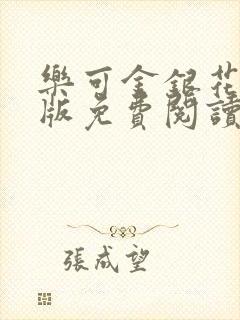 樂可金銀花
版免費閱讀
張成望